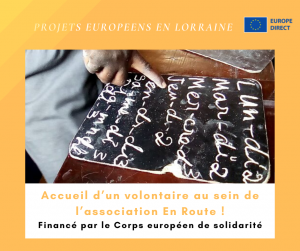 PROJETS EUROPÉENS EN LORRAINE
EUROPE
DIRECT
Lun-di
Mar-di
Mer-cre-di
Jeu-di
Ven-d-i
Sa-me-di
di-man-che
Accueil d'un volontaire au sein de
l'association En Route !
Financé par le Corps européen de solidarité